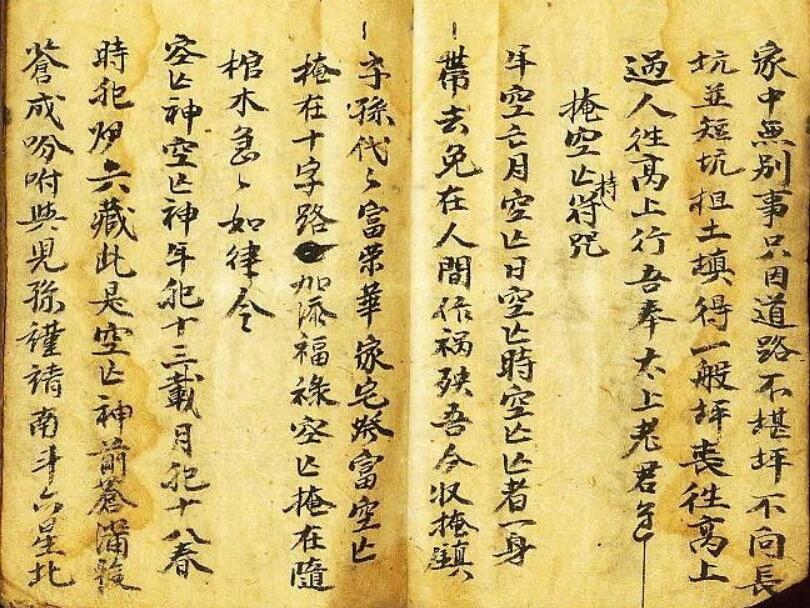 家中無別事只因道路不堪坪不向長
坑並短坑担土填得一般坪喪往高上
過人往高上行吾奉太上老君
掩空亡符持咒
年空亡月空亡日空亡時空亡亡者一身
帶去免在人間作禍殃吾今收掩鎮
子孫代々富荣華家宅富空亡
掩在十字路加添福祿空亡掩在隨
棺木急々如律令
空亡神空亡神年犯十三載月犯十八春
時犯六藏此是空亡神前蒼滿
蒼成吩咐與兒孫謹請南斗六星北